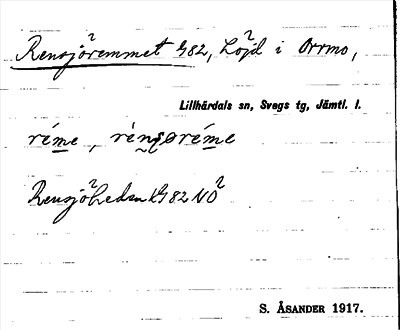 Rensjöremmet G82, Löjd i Orrmo,
Lillhärdals sn, Svegs tg, Jämtl. l.
réme, rènsøréme
Rensjöheden G82 NO
S. ÅSANDER 1917.